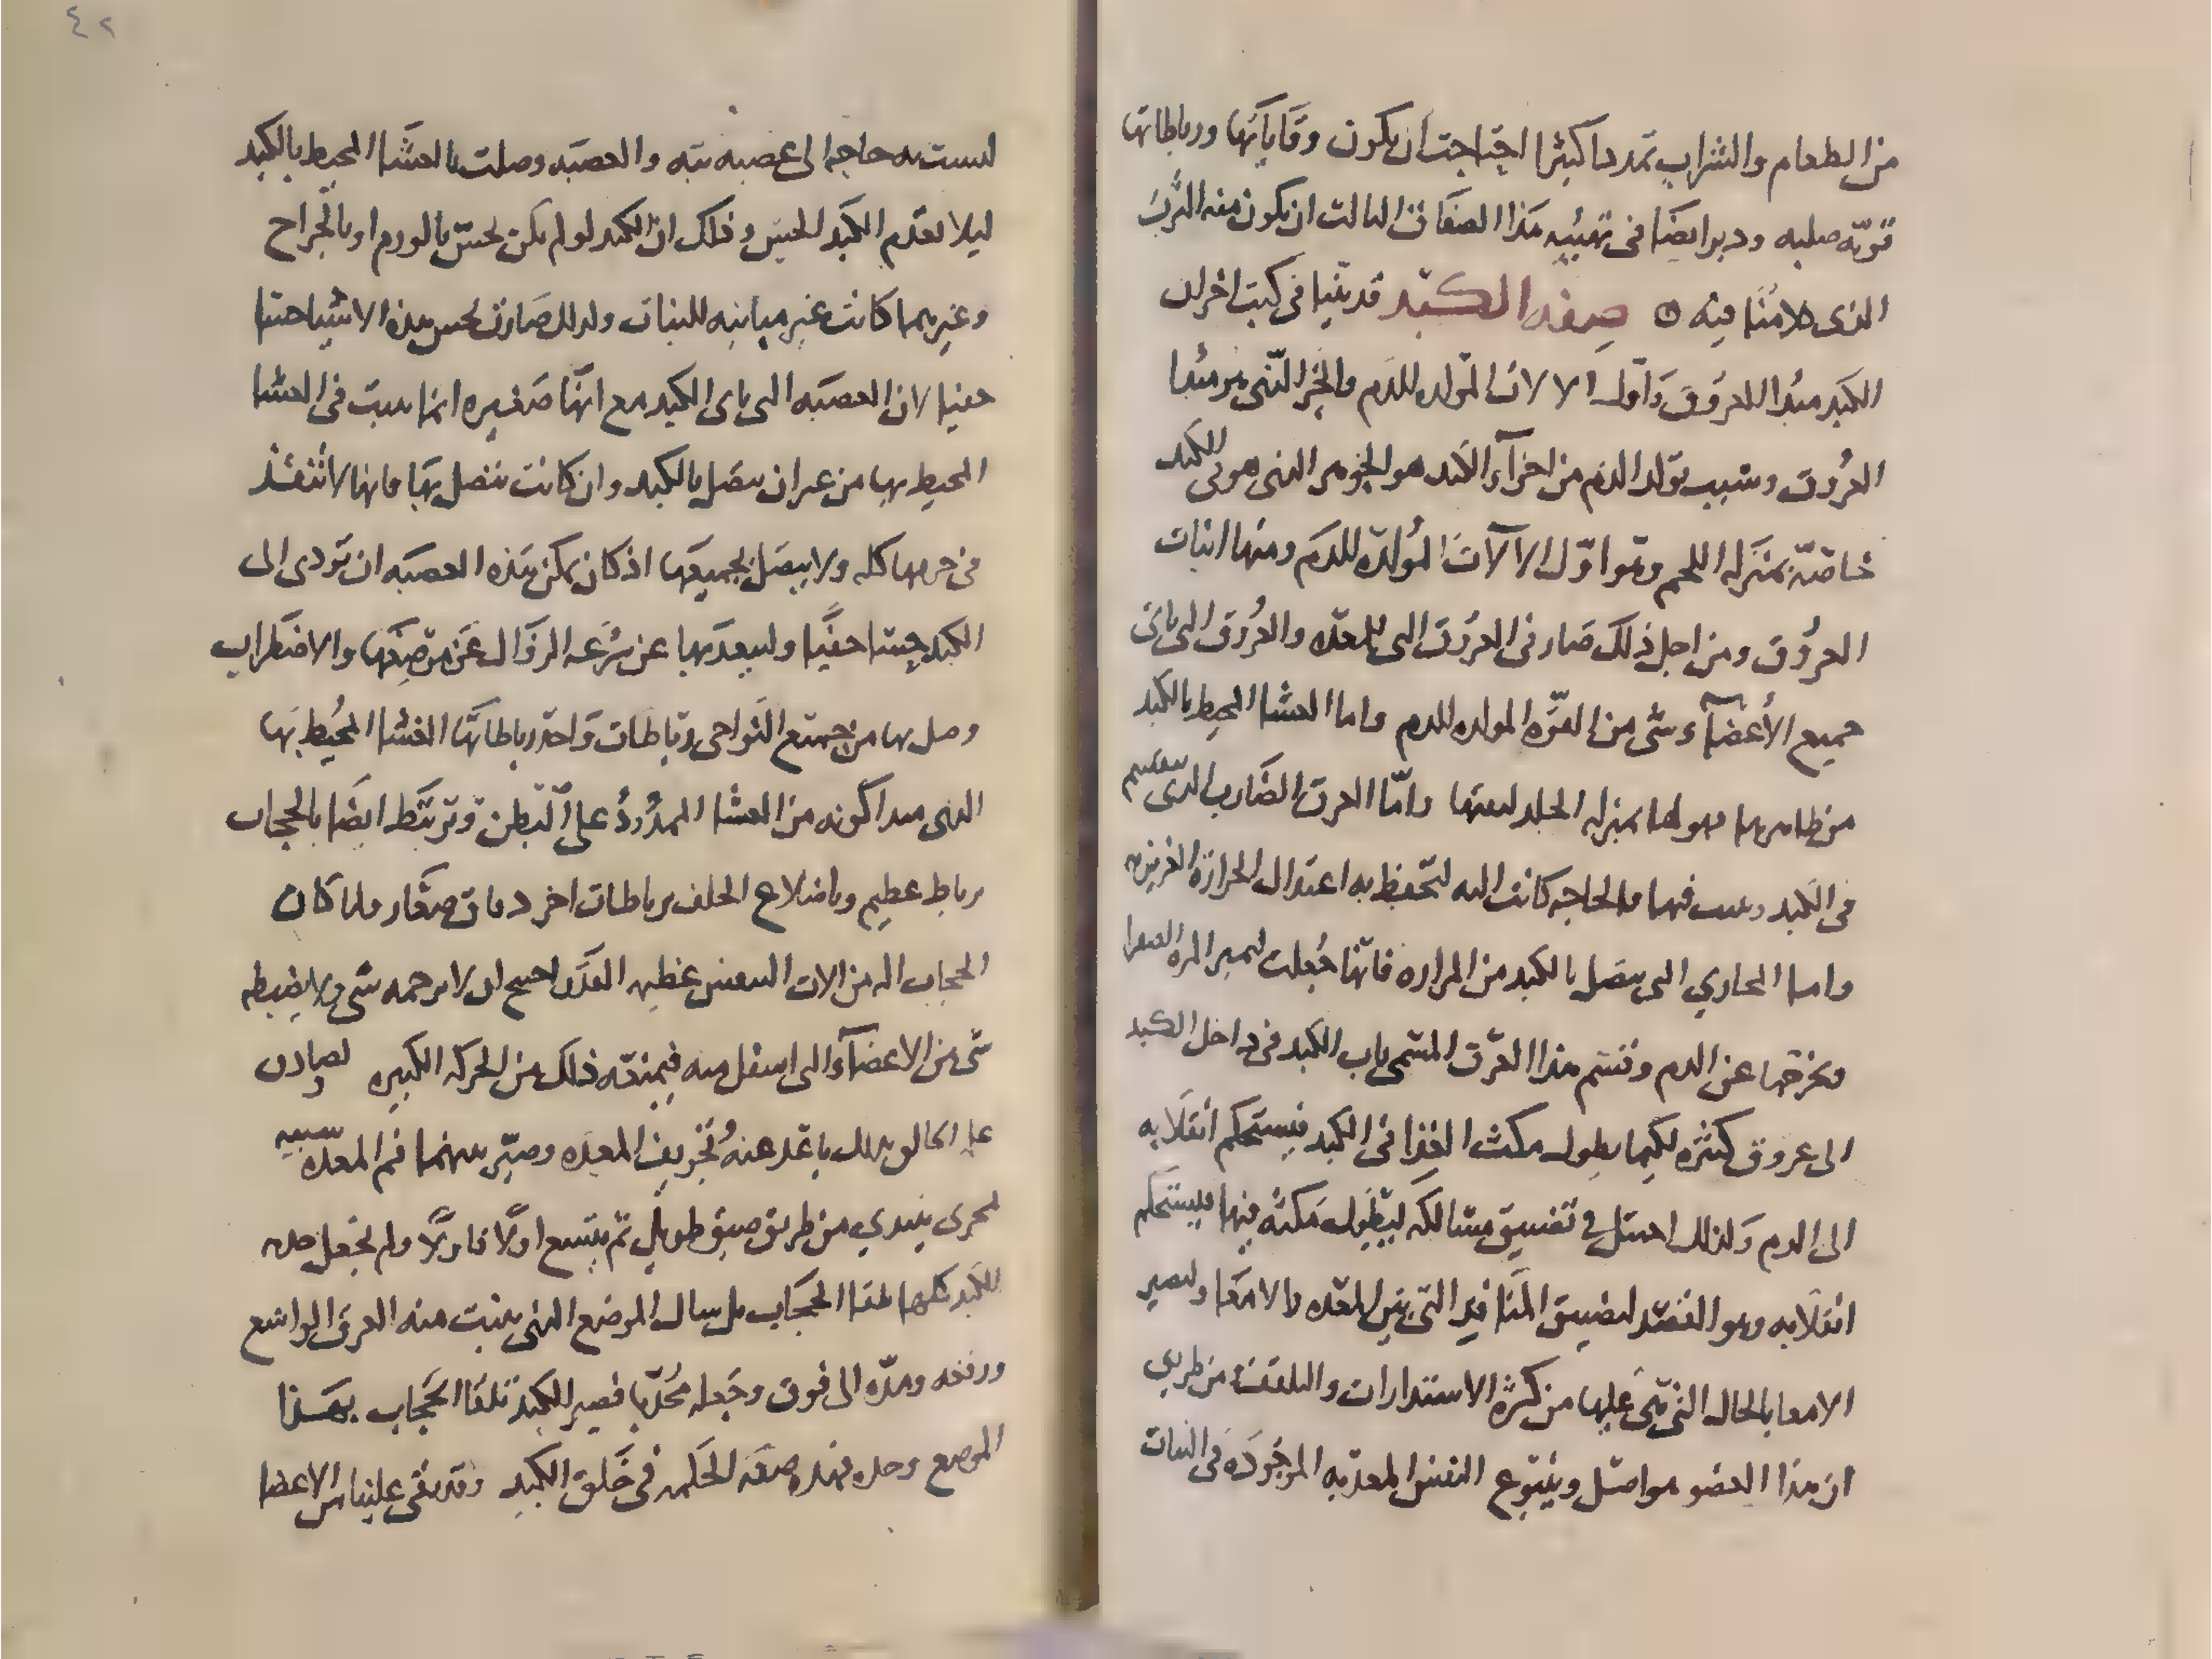 من الطعام والشراب تمددا كثيرا احتاجت ان يكون وقاياتها ورباطاتها
قويه صلبه ودبر ايضا في تهيئه هذا الصفاق الثالث ان يكون منه الثرب
الذي كلامنا فيه صفه الكبد قد بينا في كتب اخر ان
الكبد مبدا للعروق واول الالات المولده للدم والجز الذي هو مبدا
العروق وسبب تولد الدم من اجزآء الكبد هو الجوهر الذي هو في الكبد
خاصّة بمنزله اللحم وهو اوّل الآلات المُولّده للدم ومنها انبات
العروق ومن اجل ذلك صار في العروق التي للمعده والعُروق التي تاتي
جميع الأعضآء شي من القوّه المولده للدم واما الغشا المحيط بالكبد
من ظاهرها فهو لها بمنزله الجلد وامّا العرق الضارب الذي ينقسم
في الكبد فيها والحاجه كانت اليه لتحفظ به اعتدال الحرارة الغريزيه
واما المجاري التي تتصل بالكبد من المراره فانها جُعلت لتميز المره الصفرا
وتخرجها عن الدم وقسم هذا العرق المسمى باب الكبد في داخل الكبد
الى عروق كثيره لكيما يطول مكث الغذا في الكبد فيستحكم انقلابه
الى الدم ولذلك احتيل في تضييق مسالكه ليطول مكثه فيها فليستحكم
انقلابه وهو القصد لتضييق المنافذ التي بين المعده والامعا ولتصير
الامعا بالحال التي هي عليها من كثرة الاستدارات والتلفف من طريق
ان هذا العضو هو اصل وينبوع النفس المغذيه الموجوده في النبات
ليست به حاجه الى عصبه بته والعصبه وصلت بالغشا المحيط بالكبد
ليلا تعدم الكبد الحس وذلك ان الكبد لو لم يكن تحس بالورم او بالجراح
وغيرهما كانت غير مباينه للنبات ولذلك صارت تحس بهذه الاشيا حسا
خفيا لان العصبه التي تاتي الكبد مع انها صغيره انما تنبت في الغشا
المحيط بها من غير ان تتصل بالكبد وان كانت تتصل بها فانها لا تنفذ
في جرمها كله ولا يتصل بجميعها اذ كان يمكن هذه العصبه ان تودى الى
الكبد حسا خفيا وليبعدها عن سُرعه الزوال عن موضعها والاضطراب
وصل بها من جميع النواحي رباطات واحد رباطاتها الغشا المحيط بها
الذي مبدا كونه من الغشا الممدُودُ على البطن وترتبط ايضا بالحجاب
برباط عظيم وباضلاع الخلف برباطات اخر دقاق صغار ولما كان
الحجاب اله من الات التنفس عظيه القدر احتيج ان لا يزحمه شي ولا يضبطه
شي من الاعضآء التي اسفل منه فيمنعه ذلك من الحركه الكبيره
الخالق بذلك باعد عنهُ تجويف المعده وصيّر بينهما فم المعدّه
لمجرى يبتدي من طريق ضيق طويل ثم يتسع اولًا فاولًا ولم يجعل
الكبد كلها تلقا الحجاب بل الموضع الذي ينبت منه العرق الواسع
ورفعه ومدّه الى فوق وجعله محُدّبا فصير الكبد تلقا الحجاب بهذا
الموضع وحده فهذه صفه الحكمه في خلق الكبد وقد بقي علينا من الاعضا